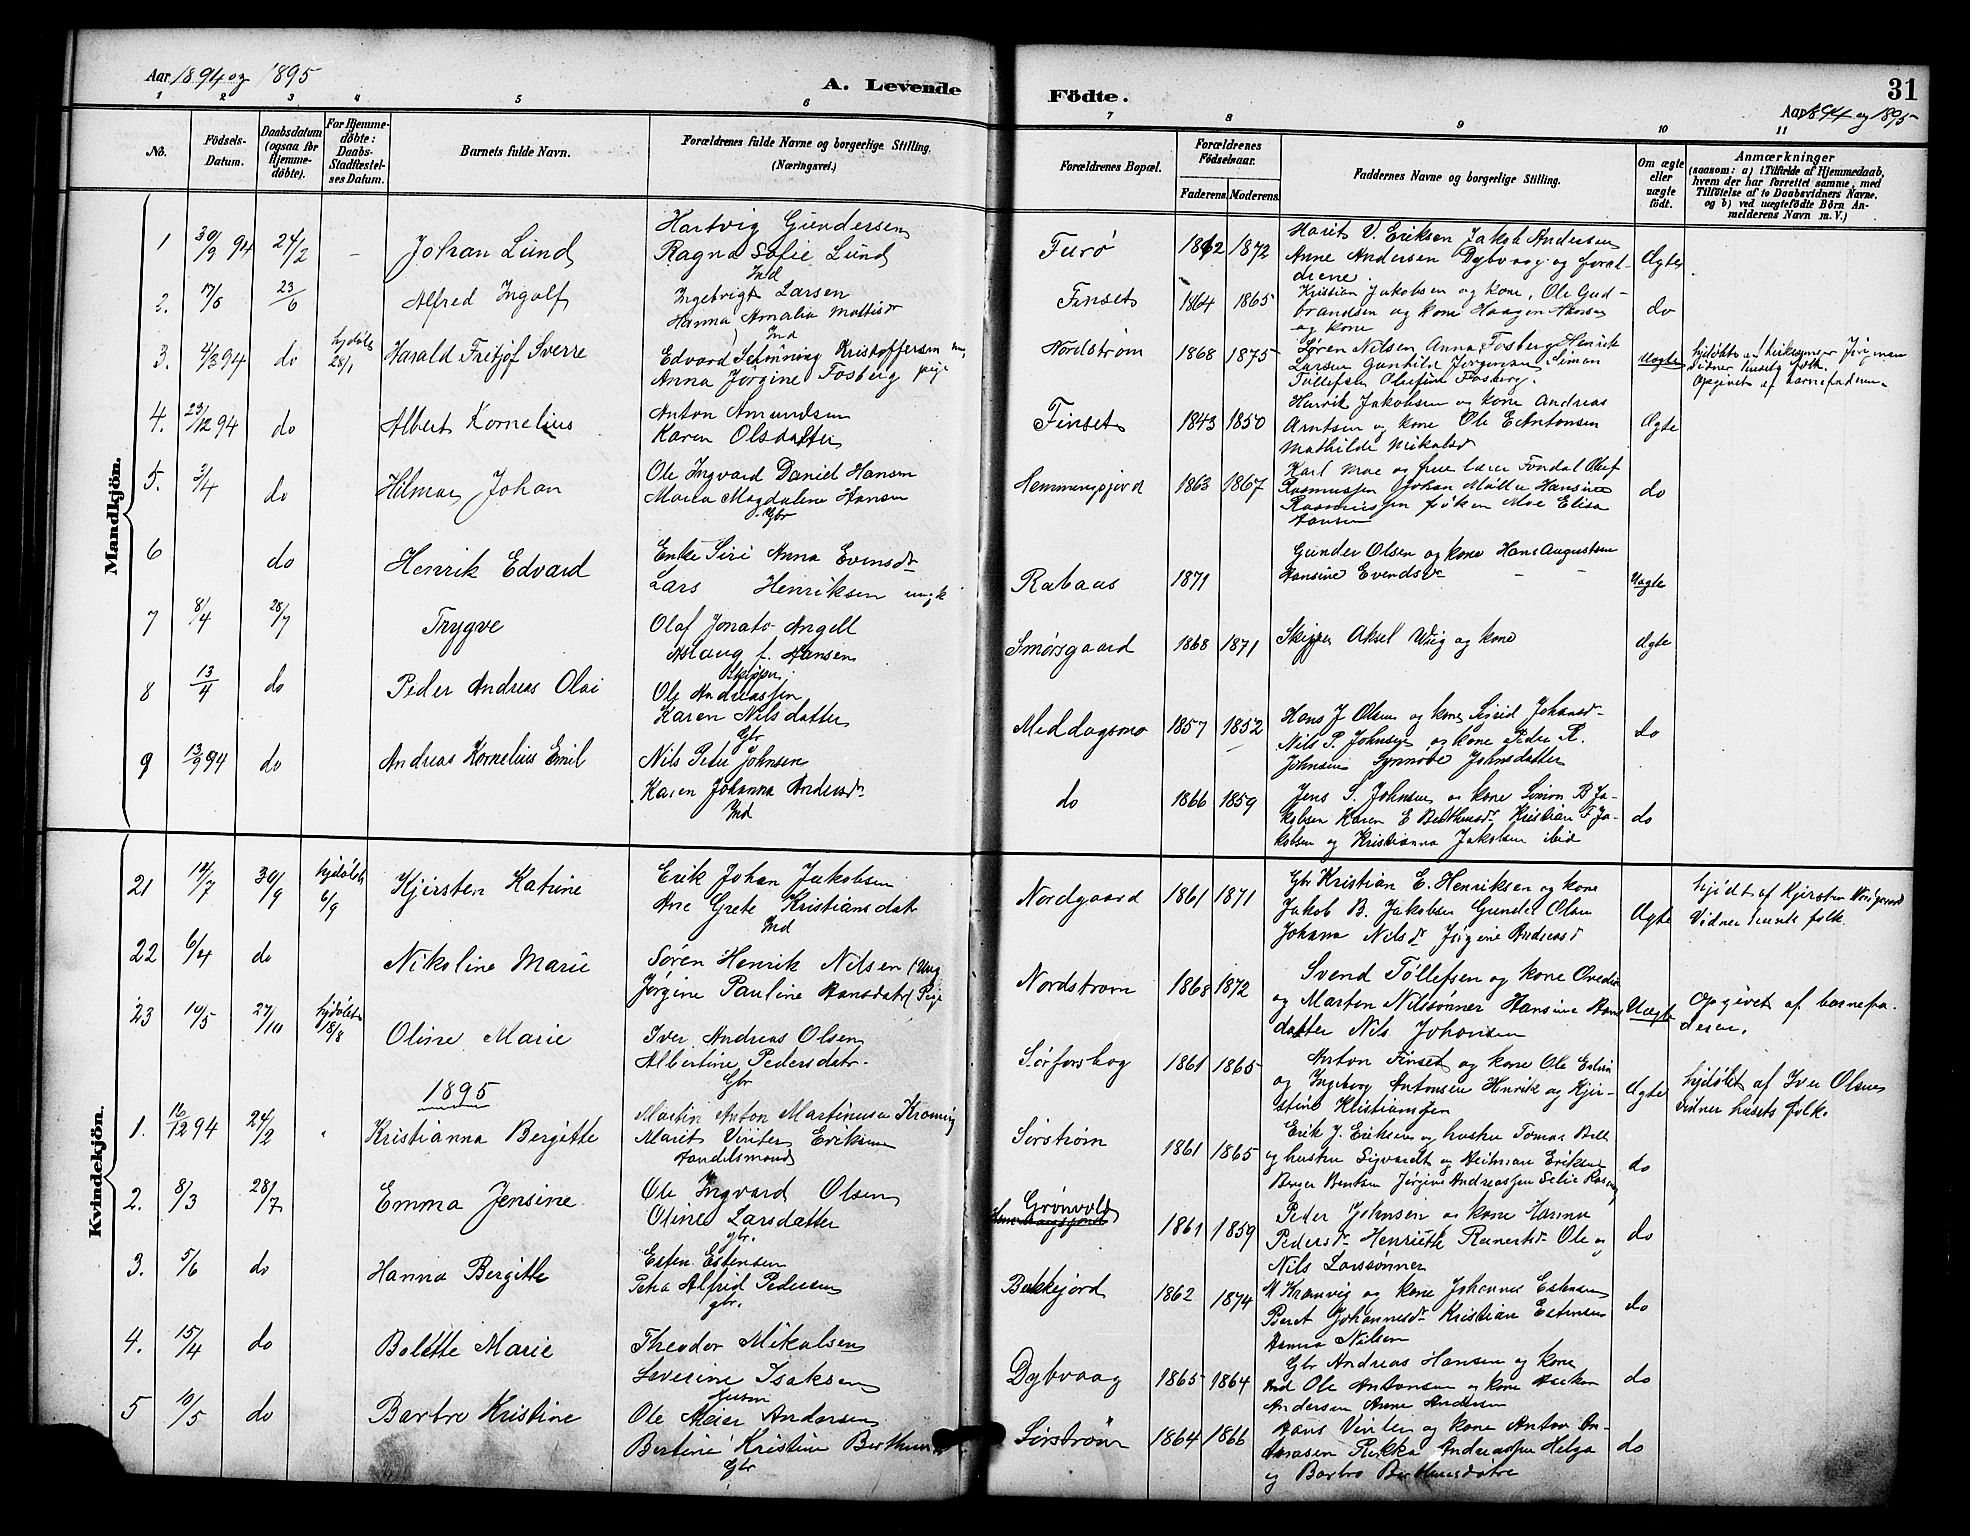 Aar 1894 og 1895
A. Levende Födte.
31
Aar 1894 og 1895
1 2 3 4 5 6 7 8 9 10 11
No.
Födsels-Datum.
Daabsdatum (ogsaa for Hjemme-döbte).
For Hjemme-döbte: Daabs-Stadfæstel-ses Datum.
Barnets fulde Navn.
Forældrenes fulde Navne og borgerlige Stilling. (Næringsvei.)
Forældrenes Bopæl.
Forældrenes Födselsaar.
Faderens. Moderens.
Faddernes Navne og borgerlige Stilling.
Om ægte eller uægte födt.
Anmærkninger
(saasom: a) i Tilfælde af Hjemmedaab, hvem der har forrettet samme, med Tilföielse af to Daabsvidners Navne. og b) ved uægtefödte Börn An-melderens Navn m. V.)
Mandkjön.
1 30/9 94 24/2 - Johan Lund
Hartvig Gundersen
Ragna Sofie Lund
Ind
Furø 1862 1872
Marit V. Eriksen Jakob Andersen
Anne Andersen Dybvaag og foræl-
drene.
Ægte
2. 7/5 23/6 Alfred Ingolf
Ingebrigt Larsen
Hanna Amalia Mattisdr
Ind
Finset 1864 1865
Kristian Jakobsen og kone, Ole Gud-
brandsen og kone Haagen
og kone
do
3. 4/3 94 do hjdøbt 28/1 Harald Fritjof Sverre
Edvard Schønning Kristoffersen
Anna Jørgine Fosberg pige
Nordstrøm 1868 1875
Søren Nilsen Anna Fosberg Henrik
Larsen Gunhild Jørgensen Simon
Tollefsen Olufine Fosberg.
Uægte
hjdøbt af kirkesanger Jørgensen
Vidner husets folk.
Opgivet af barnefaderen
4. 23/12 94 do Albert Kornelius
Anton Amundsen
Karen Olsdatter
Finset 1843 1850
Henrik Jakobsen og kone Andreas
Arntsen og kone Ole E Antonsen
Mathilde Mikalsd
Ægte
5. 3/4 do Hilmar Johan
Ole Ingvard Daniel Hansen
Maria Magdalene Hansen
Gbr
Hemmingsjord 1863 1867
Karl Moe og frue lærer Fondal Oluf
Rasmussen Johan Møller Hansine
Rasmussen frøken Moe Elisa
Hansen
do
6 do Henrik Edvard
Enke Siri Anna Evensdr
Lars Henriksen ungk
Rabaas 1871
Gunder Olsen og kone Hans Augustsen
Hansine Evensdr
Uægte
7 8/4 28/7 Trygve
Olaf Jonato Angell
Aslaug f. Hansen
Smørsgaard 1868 1871
Skipper Aksel Wiig og kone
Ægte
8 13/4 do Peder Andreas Olai
Ole Andreassen
Karen Nilsdatter
Gbr
Middagsmo 1857 1852
Hans J Olsen og kone Sigrid Johansd-
Nils P. Johnsen og kone Peder R.
Johnsen Synnøve Johnsdatter
do
9 13/9 94 do Andreas Kornelius Emil
Nils Peder Johnsen
Karen Johanna Andersdr
Ind
do 1866 1859
Jens S. Johnsen og kone Simon B Ja-
kobsen Karen E Berthinsdr Kristian F Ja-
kobsen og Kristianna Jakobsen ibid
do
Kvindekjön.
21 14/7 30/9 hjdøbt 6/9 Kjirsten Katrine
Erik Johan Jakobsen
Ane Grete Kristiansdat
Ind
Nordgaard 1861 1871
Gbr Kristian E. Henriksen og kone
Jakob B. Jakobsen Gunder Olsen
Johana Nilsdr Jørgine Andreasd
Ægte
hjdøbt af Kjersten Nordgaard
Vidner husets folk.
22 6/4 do Nikoline Marie
Søren Henrik Nilsen (Ung
Jørgine Pauline Hansdat( Pige
Nordstrøm 1868 1872
Svend Tollefsen og kone Ovedia
og Marton Nilssønner Hansine Hans
datter Nils Johansen
Uægte
Opgivet af barnefa-
deren.
23 10/5 27/10 hjdøbt 18/8 Oline Marie
Iver Andreas Olsen
Albertine Pedersdatr.
Gbr
Sørforshog 1861 1865
Anton Finset og kone Ole Eslia
og Ingeborg Antonsen Henrik og Kjir-
stine Kristiansen
Ægte
hjdøbt af Iver Olsen
Vidner husets folk.
1895
1. 16/12 94 24/2 Kristianna Bergitte
Martin Anton Martinusen Kramvig
Marit Vinter Eriksen
Handelsmand
Sørstrøm 1861 1865
Erik J. Eriksen og hustru Tomas Bell
og hustru Sigvardt og Heitman Eriksen
Berger Bentsen Jørgine Andreassen
do
2. 8/3 28/7 Emma Jensine
Ole Ingvard Olsen
Oline Larsdatter
gbr.
Grønvold 1861 1859
Peder Johnsen og kone Hanna
Pedersdr Henriette Reinertsdr Ole og
Nils Larssønner
do
3. 5/6 do Hanna Bergitte
Esten Estensen
Petra Alfrid Pedersen
gbr.
Bukkejord 1862 1874
M Kramvig og kone Johannes Estensen
Beret Johannesdr Kristian Estensen
Hanna Nilsen
do
4. 15/4 do Bolette Marie
Theodor Mikalsen
Severine Isaksen
Dybvaag 1865 1864
Gbr Andreas Hansen og kone
Ind Ole Antonsen og kone Haakon
Andersen Anne Andersen
do
5 10/5 do Barbro Kristine
Ole Meier Andersen
Bertine Kristine Berthins
Gbr
Sørstrøm 1864 1866
Hans Vinter og kone Anton An-
dreasen Rikka Andreassen Helga
og Barbro Berthinsdøtre
do